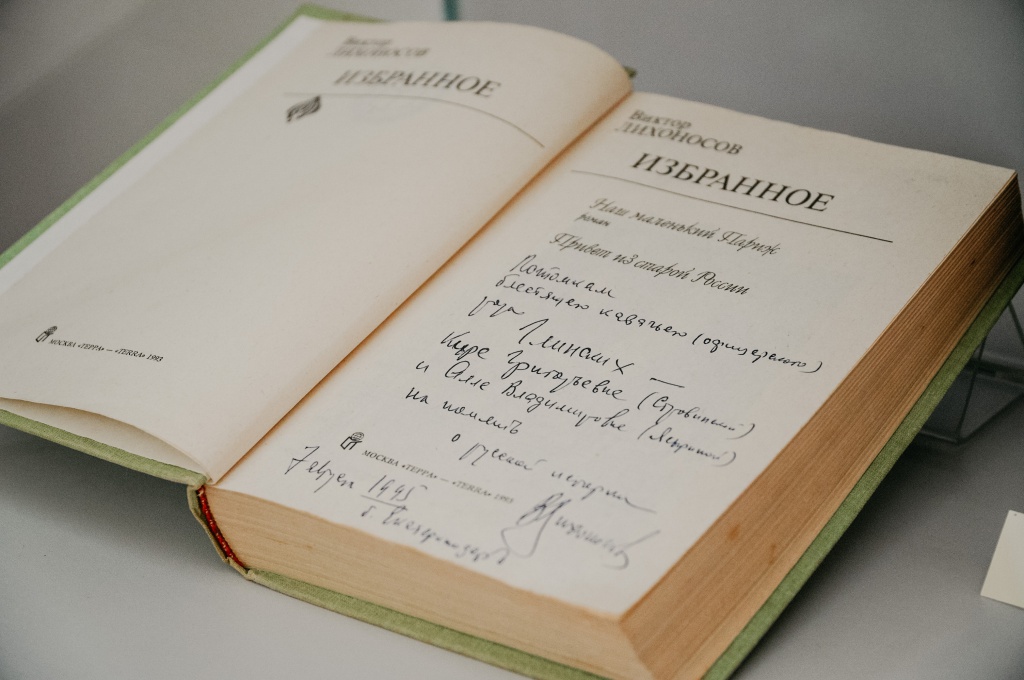 Виктор
ЛИХОНОСОВ
ИЗБРАННОЕ
МОСКВА «ТЕРРА» — «TERRA» 1993
Виктор
ЛИХОНОСОВ
ИЗБРАННОЕ
Наш маленький Париж
роман
Привет из старой России
Потомкам
блестящего казачьего
рода
Глинских —
Кире Григорьевне
и Алле Владимировне
на память
о русской истории
МОСКВА «ТЕРРА» — «TERRA» 1993
1995
г. Екатеринодар